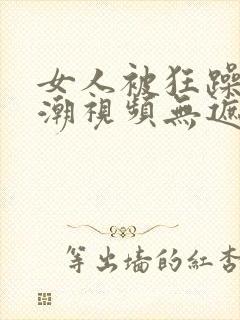 女人被狂躁
潮視頻無遮
等出墙的紅杏